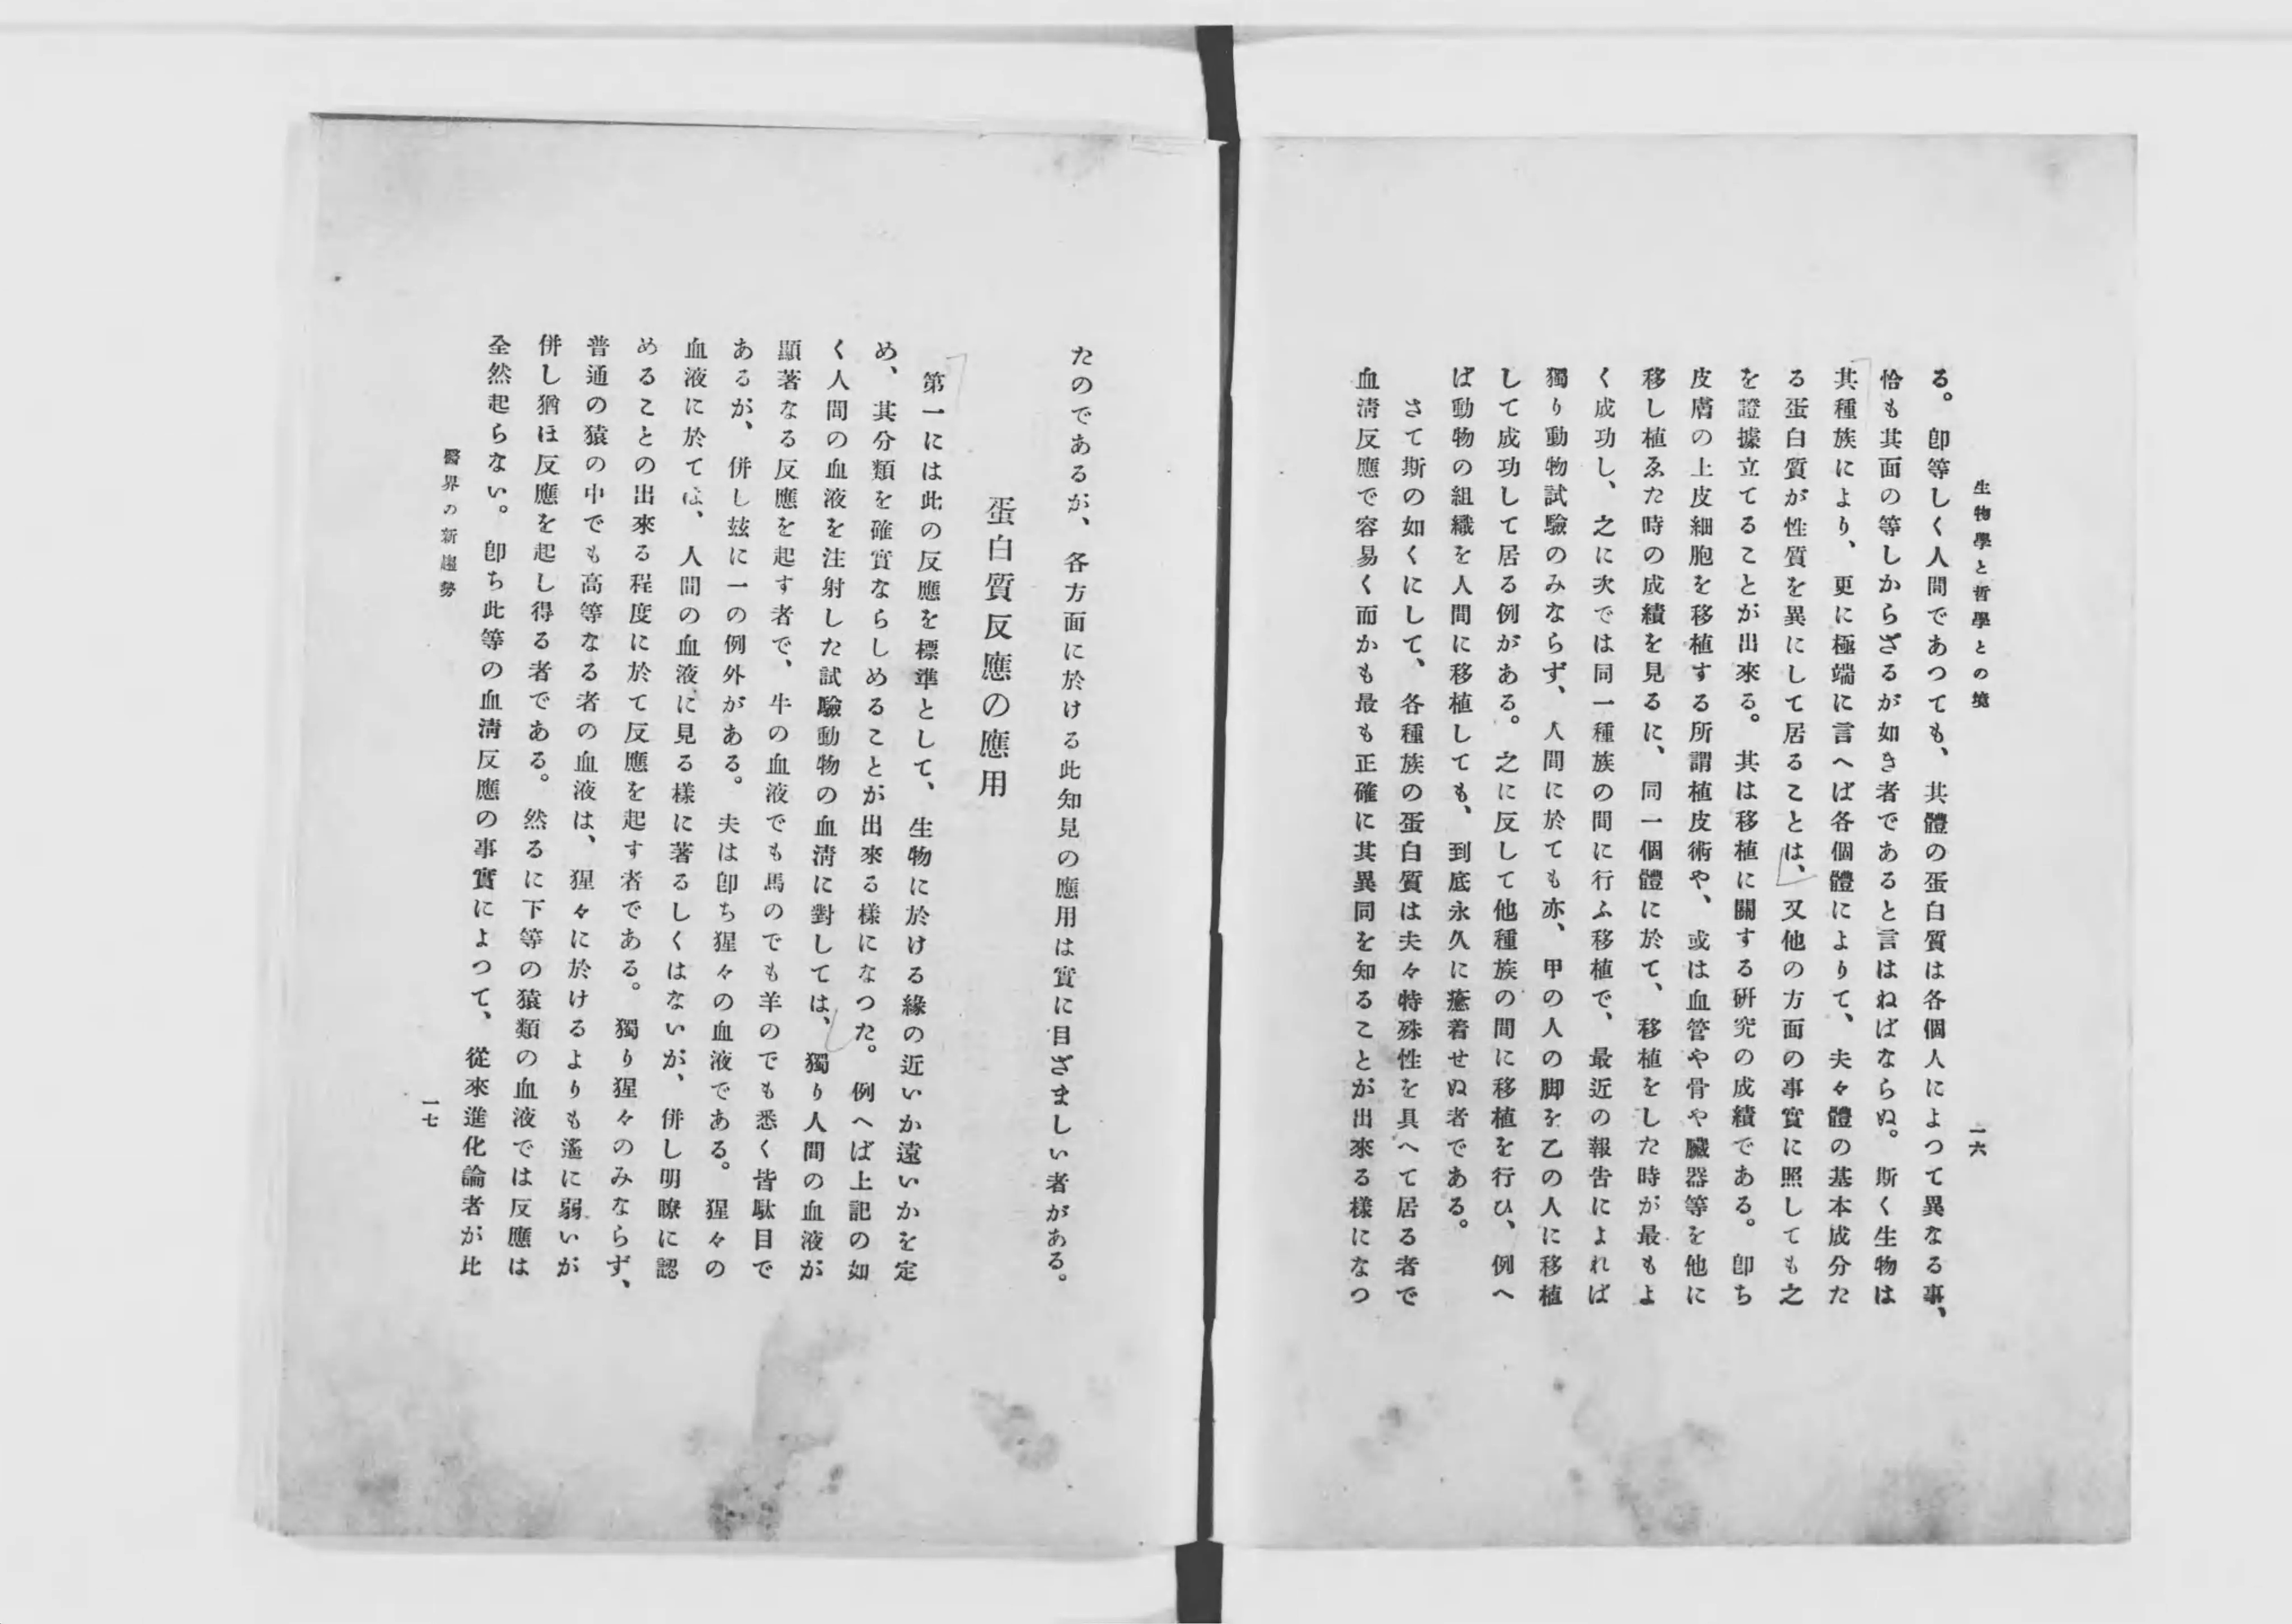 生物學と哲學との境
一六
る。卽等しく人間であつても、其體の蛋白質は各個人によつて異なる事、
恰も其面の等しからざるが如き者であると言はねばならぬ。斯く生物は
其種族により、更に極端に言へば各個體によりて、夫々體の基本成分た
る蛋白質が性質を異にして居ることは、又他の方面の事實に照しても之
を證據立てることが出來る。其は移植に關する硏究の成績である。卽ち
皮膚の上皮細胞を移植する所謂植皮術や、或は血管や骨や臟器等を他に
移し植ゑた時の成績を見るに、同一個體に於て、移植をした時が最もよ
く成功し、之に次では同一種族の間に行ふ移植で、最近の報告によれば
獨り動物試驗のみならず、人間に於ても亦、甲の人の脚を乙の人に移植
して成功して居る例がある。之に反して他種族の間に移植を行ひ、例へ
ば動物の組織を人間に移植しても、到底永久に癒着せぬ者である。
さて斯の如くにして、各種族の蛋白質は夫々特殊性を具へて居る者で
血淸反應で容易く而かも最も正確に其異同を知ることが出來る樣になつ
たのであるが、各方面に於ける此知見の應用は實に目ざましい者がある。
蛋白質反應の應用
第一には此の反應を標準として、生物に於ける緣の近いか遠いかを定
め、其分類を確實ならしめることが出來る樣になつた。例へば上記の如
く人間の血液を注射した試驗動物の血淸に對しては、獨り人間の血液が
顯著なる反應を起す者で、牛の血液でも馬のでも羊のでも悉く皆駄目で
あるが、併し玆に一の例外がある。夫は卽ち猩々の血液である。猩々の
血液に於ては、人間の血液に見る樣に著るしくはないが、併し明瞭に認
めることの出來る程度に於て反應を起す者である。獨り猩々のみならず、
普通の猿の中でも高等なる者の血液は、猩々に於けるよりも遙に弱いが
併し猶ほ反應を起し得る者である。然るに下等の猿類の血液では反應は
全然起らない。卽ち此等の血淸反應の事實によつて、從來進化論者が比
醫界の新趨勢
一七